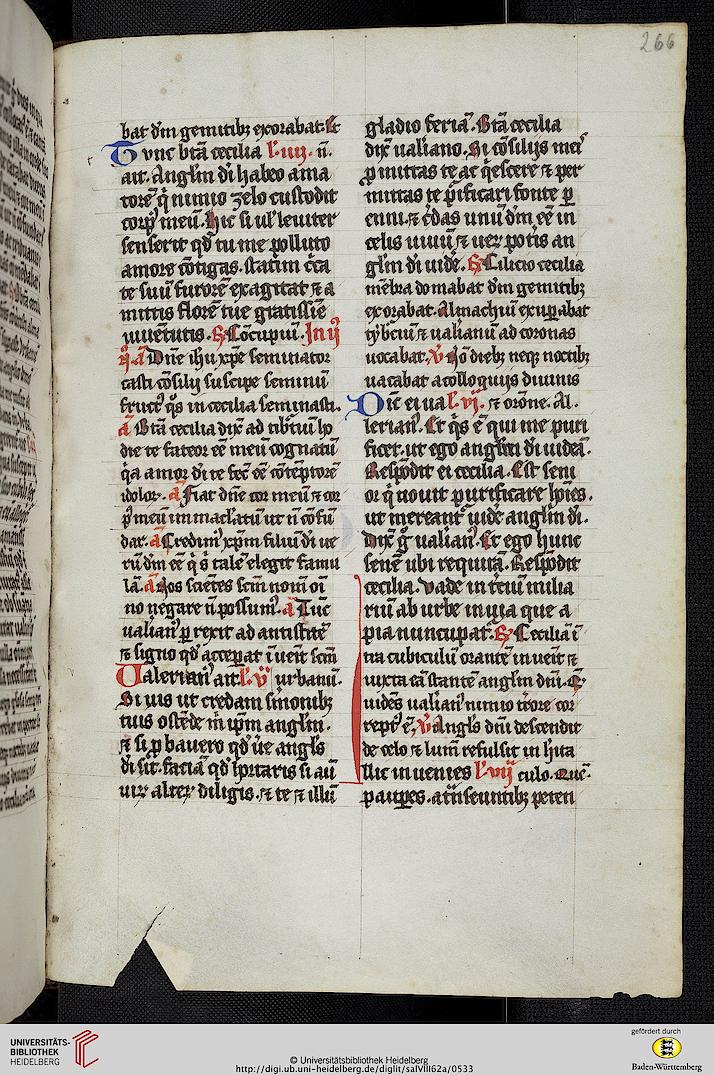 266
bat dm̄ gemitibꝫ exorabat. Et
Tvnc btā cecilia l'. iiij. n̄.
ait. Anglm̄ di habeo ama
torē q̄ nimio zelo custodit
corpꝰ meū. Hic si uł leuiter
senserit qđ tu me polluto
amore cōtigas. statim c̄ca
te suū furorē exagitat ⁊ a
mittis florē tue gratissīē
iuuētutis. ℟ Cōcupiuī. In ij
Dn̄e ihū xp̄e seminator
casti cōsilij suscipe seminū
fructꝰ q̄s in cecilia seminasti.
a Btā cecilia dix̄ ad tibᵉtiū ho
die te fateor eē meū cognatū
q̄a amor di te fec̄ eē cōtēptorē
idolor. a Fiat dn̄e cor meū ⁊ cor
pꝰ meū immaclatū ut n̄ cōfū
dar. a Credimꝰ xp̄m filiū di ue
rū dm̄ eē q̄ s̄ talē elegit famu
lā. a Nos sciētes scm̄ nom̄ oī
no negare n̄ possumꝰ. a Tūc
ualianꝰ perrexit ad antistitē
⁊ signo qđ accepat īuēit scm̄
Ualerianꝰ ait l'. v urbanū.
Si uis ut credam sīmonibꝫ
tuis ostēde m̄ ipm̄ anglm̄.
⁊ si ꝓbauero qđ ūe angls
di sit. faciā qđ hortaris si aū
uirꝫ alterꝫ diligis. ⁊ te ⁊ illū
gladio feriā. Btā cecilia
dix̄ ualiano. Si cōsilijs meis
ꝓmittas te acq̄escere ⁊ per
mittas te p̄ificari fonte ꝑ
enni. ⁊ c̄das unū dm̄ eē in
celis uiuū ⁊ uerꝫ potis an
glm̄ di uidē. ℟ Cilicio cecilia
mēbra domabat dm̄ gemitibꝫ
exorabat. Almachiū exuꝑabat
tyb̄ciū ⁊ ualianū ad coronas
uocabat. ℣ Nō diebꝫ neqꝫ noctibꝫ
uacabat a colloquijs diuinis
Dic̄ ei ua l'. vj. ⁊ orōne. Al.
lerianꝰ. Et q̄s ē qui me puri
ficet. ut ego anglm̄ di uideā.
Respōdit ei cecilia. Est seni
or q̄ nouit purificare hoīes.
ut mereantꝰ uidē anglm̄ di.
Dix̄ ḡ ualianꝰ. Et ego hunc
senē ubi requirā. Respōdit
cecilia. Vade in t̄ciū milia
riū ab urbe in uia que a
pia nuncupatꝰ. ℟ Cecilia ī
tra cubiculū orantē inuēit ⁊
iuxta eā stantē anglm̄ dn̄i. Q̄
uidēs ualianꝰ nimio t̄rore cor
reptꝰ ē. ℣ Angls dn̄i descendit
de celo ⁊ lum̄ refulsit in hīta
Illic inuenies l'. vij culo. Quē.
pauꝑes. a t̄nseuntibꝫ peten
UNIVERSITÄTS-
BIBLIOTHEK
HEIDELBERG
© Universitätsbibliothek Heidelberg
http://digi.ub.uni-heidelberg.de/diglit/salVIII62a/0533
gefördert durch
Baden-Württemberg